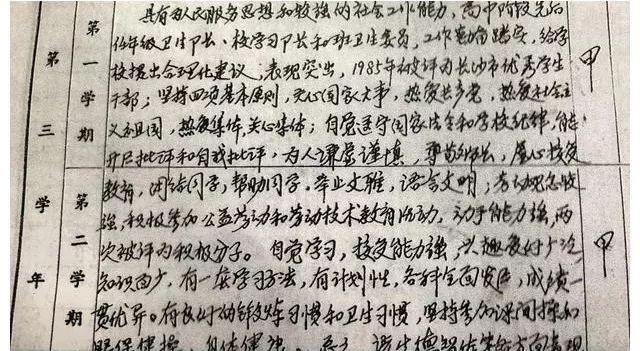 具有为人民服务思想和较强的社会工作能力，高中阶段先后
任年级卫生部长、校学习部长和班卫生委员，工作勤奋踏实，给学
校提出合理化建议，表现突出，1985年被评为长沙市优秀学生
干部；坚持四项基本原则，关心国家大事，热爱共产党，热爱社会主
义祖国，热爱集体，关心集体；自觉遵守国家法令和学校纪律，能
开展批评和自我批评，为人谦虚谨慎，尊敬师长，虚心接受
教育，团结同学，帮助同学，举止文雅，语言文明；劳动观念较
强，积极参加公益劳动和劳动技术教育活动，动手能力强，两
次被评为积极分子。自觉学习，接受能力强，兴趣爱好广泛
知识面广，有一套学习方法，有计划性，各科全面发展，成绩一
贯优异。有良好的锻炼习惯和卫生习惯，坚持参加课间操和
眼保健操，身体健康。该生德智体等方面表现
第三学年
第一学期
第二学期
甲
甲